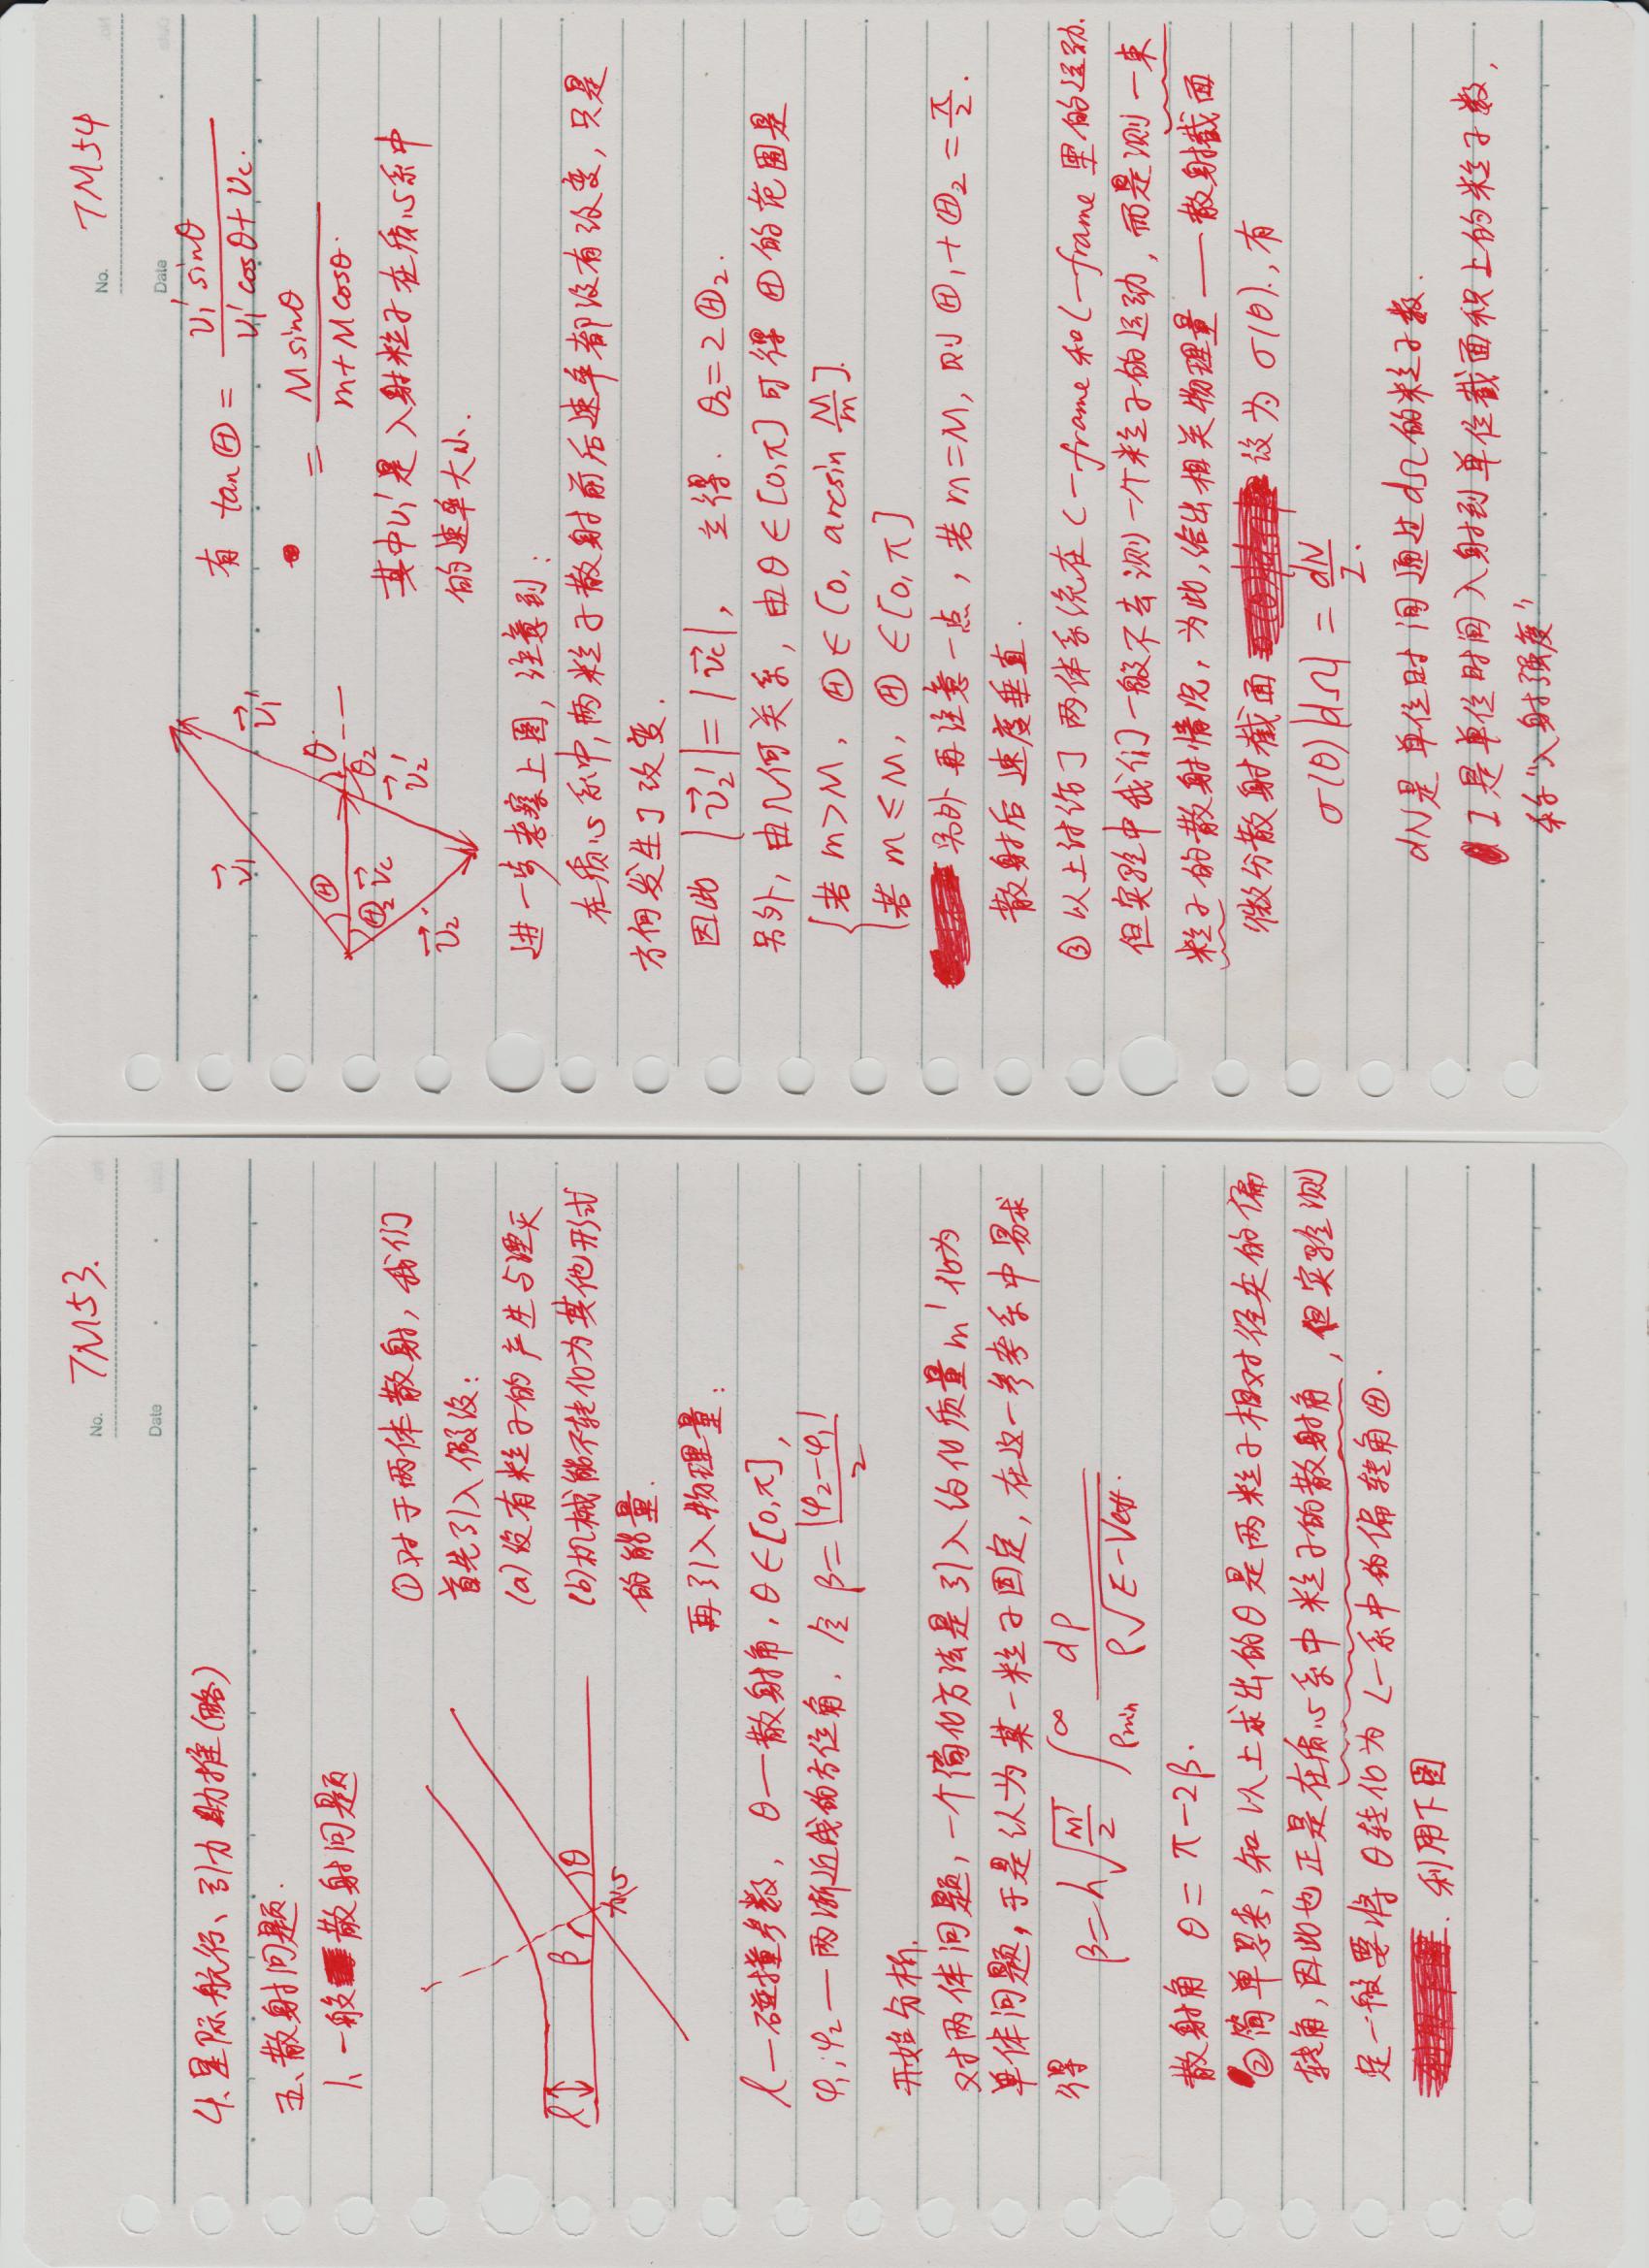 No. TM53.
Date
4、星际航行、引力助推(略)
五、散射问题.
1、一般散射问题
①对于两体散射，我们
首先引入假设：
(a)没有粒子的产生与湮灭
(b)机械能不转化为其他形式
的能量.
再引入物理量：
l β θ
力心
l—碰撞参数，θ—散射角，θ∈[0,π]，
φ₁,φ₂—两渐近线的方位角. 令 β=|φ₂-φ₁|/2
开始分析.
对两体问题，一个简化方法是引入约化质量m'化为
单体问题，于是认为某一粒子固定，在这一参考系中易求
得 β=h√(m'/2) ∫_{ρmin}^{∞} dρ/(ρ√(E-Veff.))
散射角 θ=π-2β.
②简单思考，知以上求出的θ是两粒子相对径矢的偏
转角，因此也正是在质心系中粒子的散射角，但实验测
定一般要将θ转化为L-系中的偏转角Ⓗ.
利用下图
No. TM54
Date
v₁ v₁' Ⓗ θ
Ⓗ₂ vc θ₂
v₂ v₂'
有 tanⒽ = v₁'sinθ/(v₁'cosθ+vc.)
= Msinθ/(m+Mcosθ.)
其中v₁'是入射粒子在质心系中
的速率大小.
进一步考察上图，注意到：
在质心系中，两粒子散射前后速率都没有改变，只是
方向发生了改变.
因此 |v₂'|=|vc|， 立得. θ₂=2Ⓗ₂.
另外，由几何关系，由θ∈[0,π]可得Ⓗ的范围是
若m>M，Ⓗ∈[0, arcsin M/m].
若m≤M，Ⓗ∈[0,π]
另外再注意一点，若m=M，则Ⓗ₁+Ⓗ₂=π/2.
散射后速度垂直.
③以上讨论了两体系统在C-frame和L-frame里的运动.
但实验中我们一般不去测一个粒子的运动，而是测一束
粒子的散射情况，为此，给出相关物理量——散射截面
微分散射截面 设为σ(θ).，有
σ(θ)|dΩ| = dN/I.
dN是单位时间通过dΩ的粒子数.
I是单位时间入射到单位截面积上的粒子数，
称"入射强度"